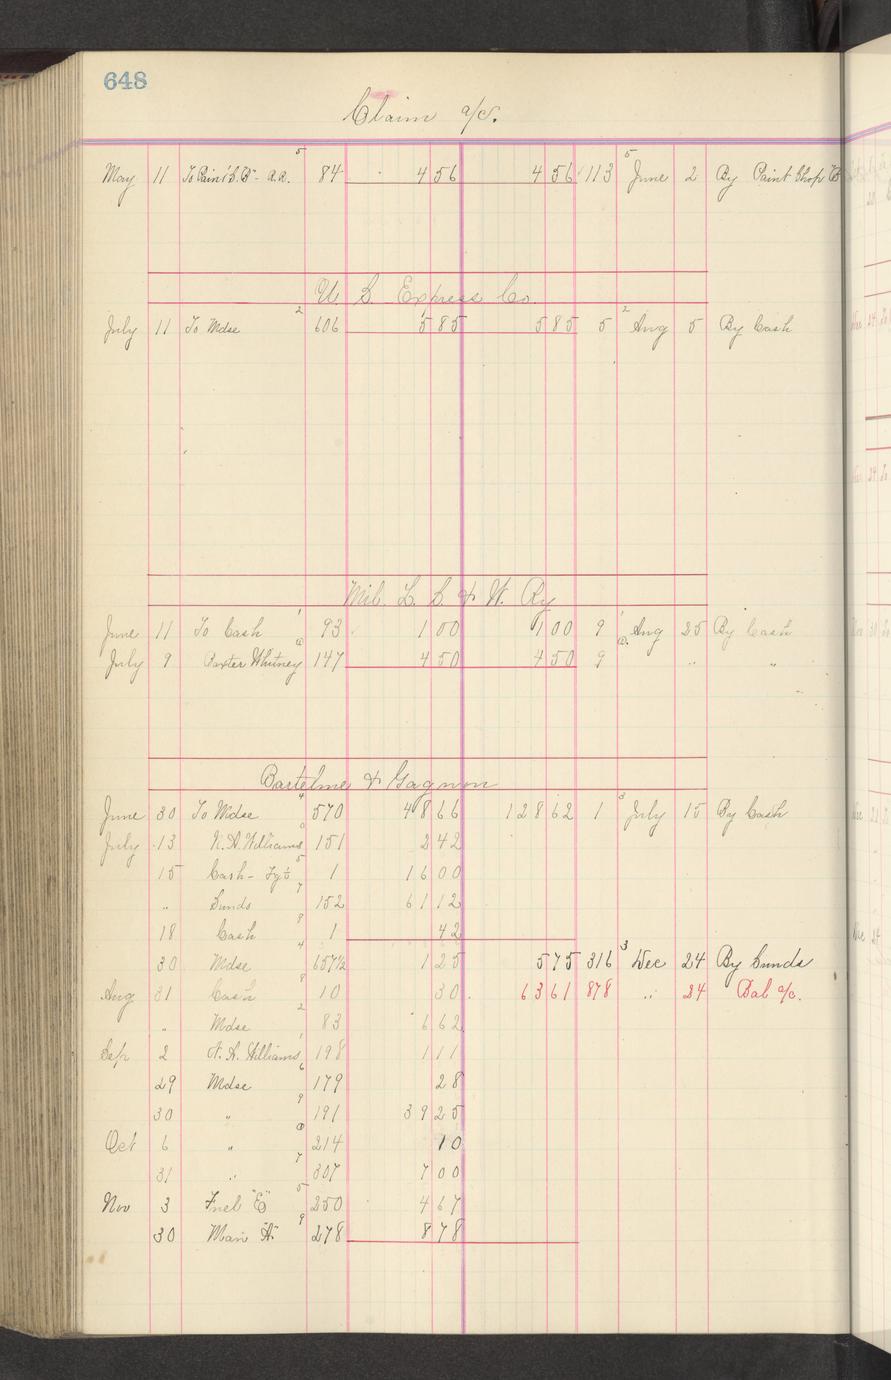 648
Claim a/c.
May 11 To Paint S. "B" - a.a. 5 84 4 56 4 56 113 5 June 2 By Paint Shop "B"
U. S. Express Co.
July 11 To Mdse 2 606 5 85 5 85 5 2 Aug 5 By Cash
Mil. L. S. & W. Ry
June 11 To Cash 1 93 1 00 1 00 9 1 Aug 25 By Cash
July 9 Baxter Whitney 147 4 50 4 50 9 " "
Bartelme & Gagnon
June 30 To Mdse 4 570 48 66 128 62 1 3 July 15 By Cash
July 13 N. A. Williams 151 2 42
15 Cash - 5 1 16 00
" Sunds 7 152 61 12
18 Cash 8 1 42
30 Mdse 4 657½ 1 25 5 75 316 3 Dec 24 By Sunds
Aug 31 Cash 8 10 30 63 61 878 " 24 Bal a/c.
" Mdse 2 83 6 62
Sep 2 N. A. Williams 1 198 1 11
29 Mdse 6 179 28
30 " 9 191 39 25
Oct 6 " 214 10
31 " 7 307 7 00
Nov 3 Fuel "E" 5 250 4 67
30 Man "A" 9 278 8 78